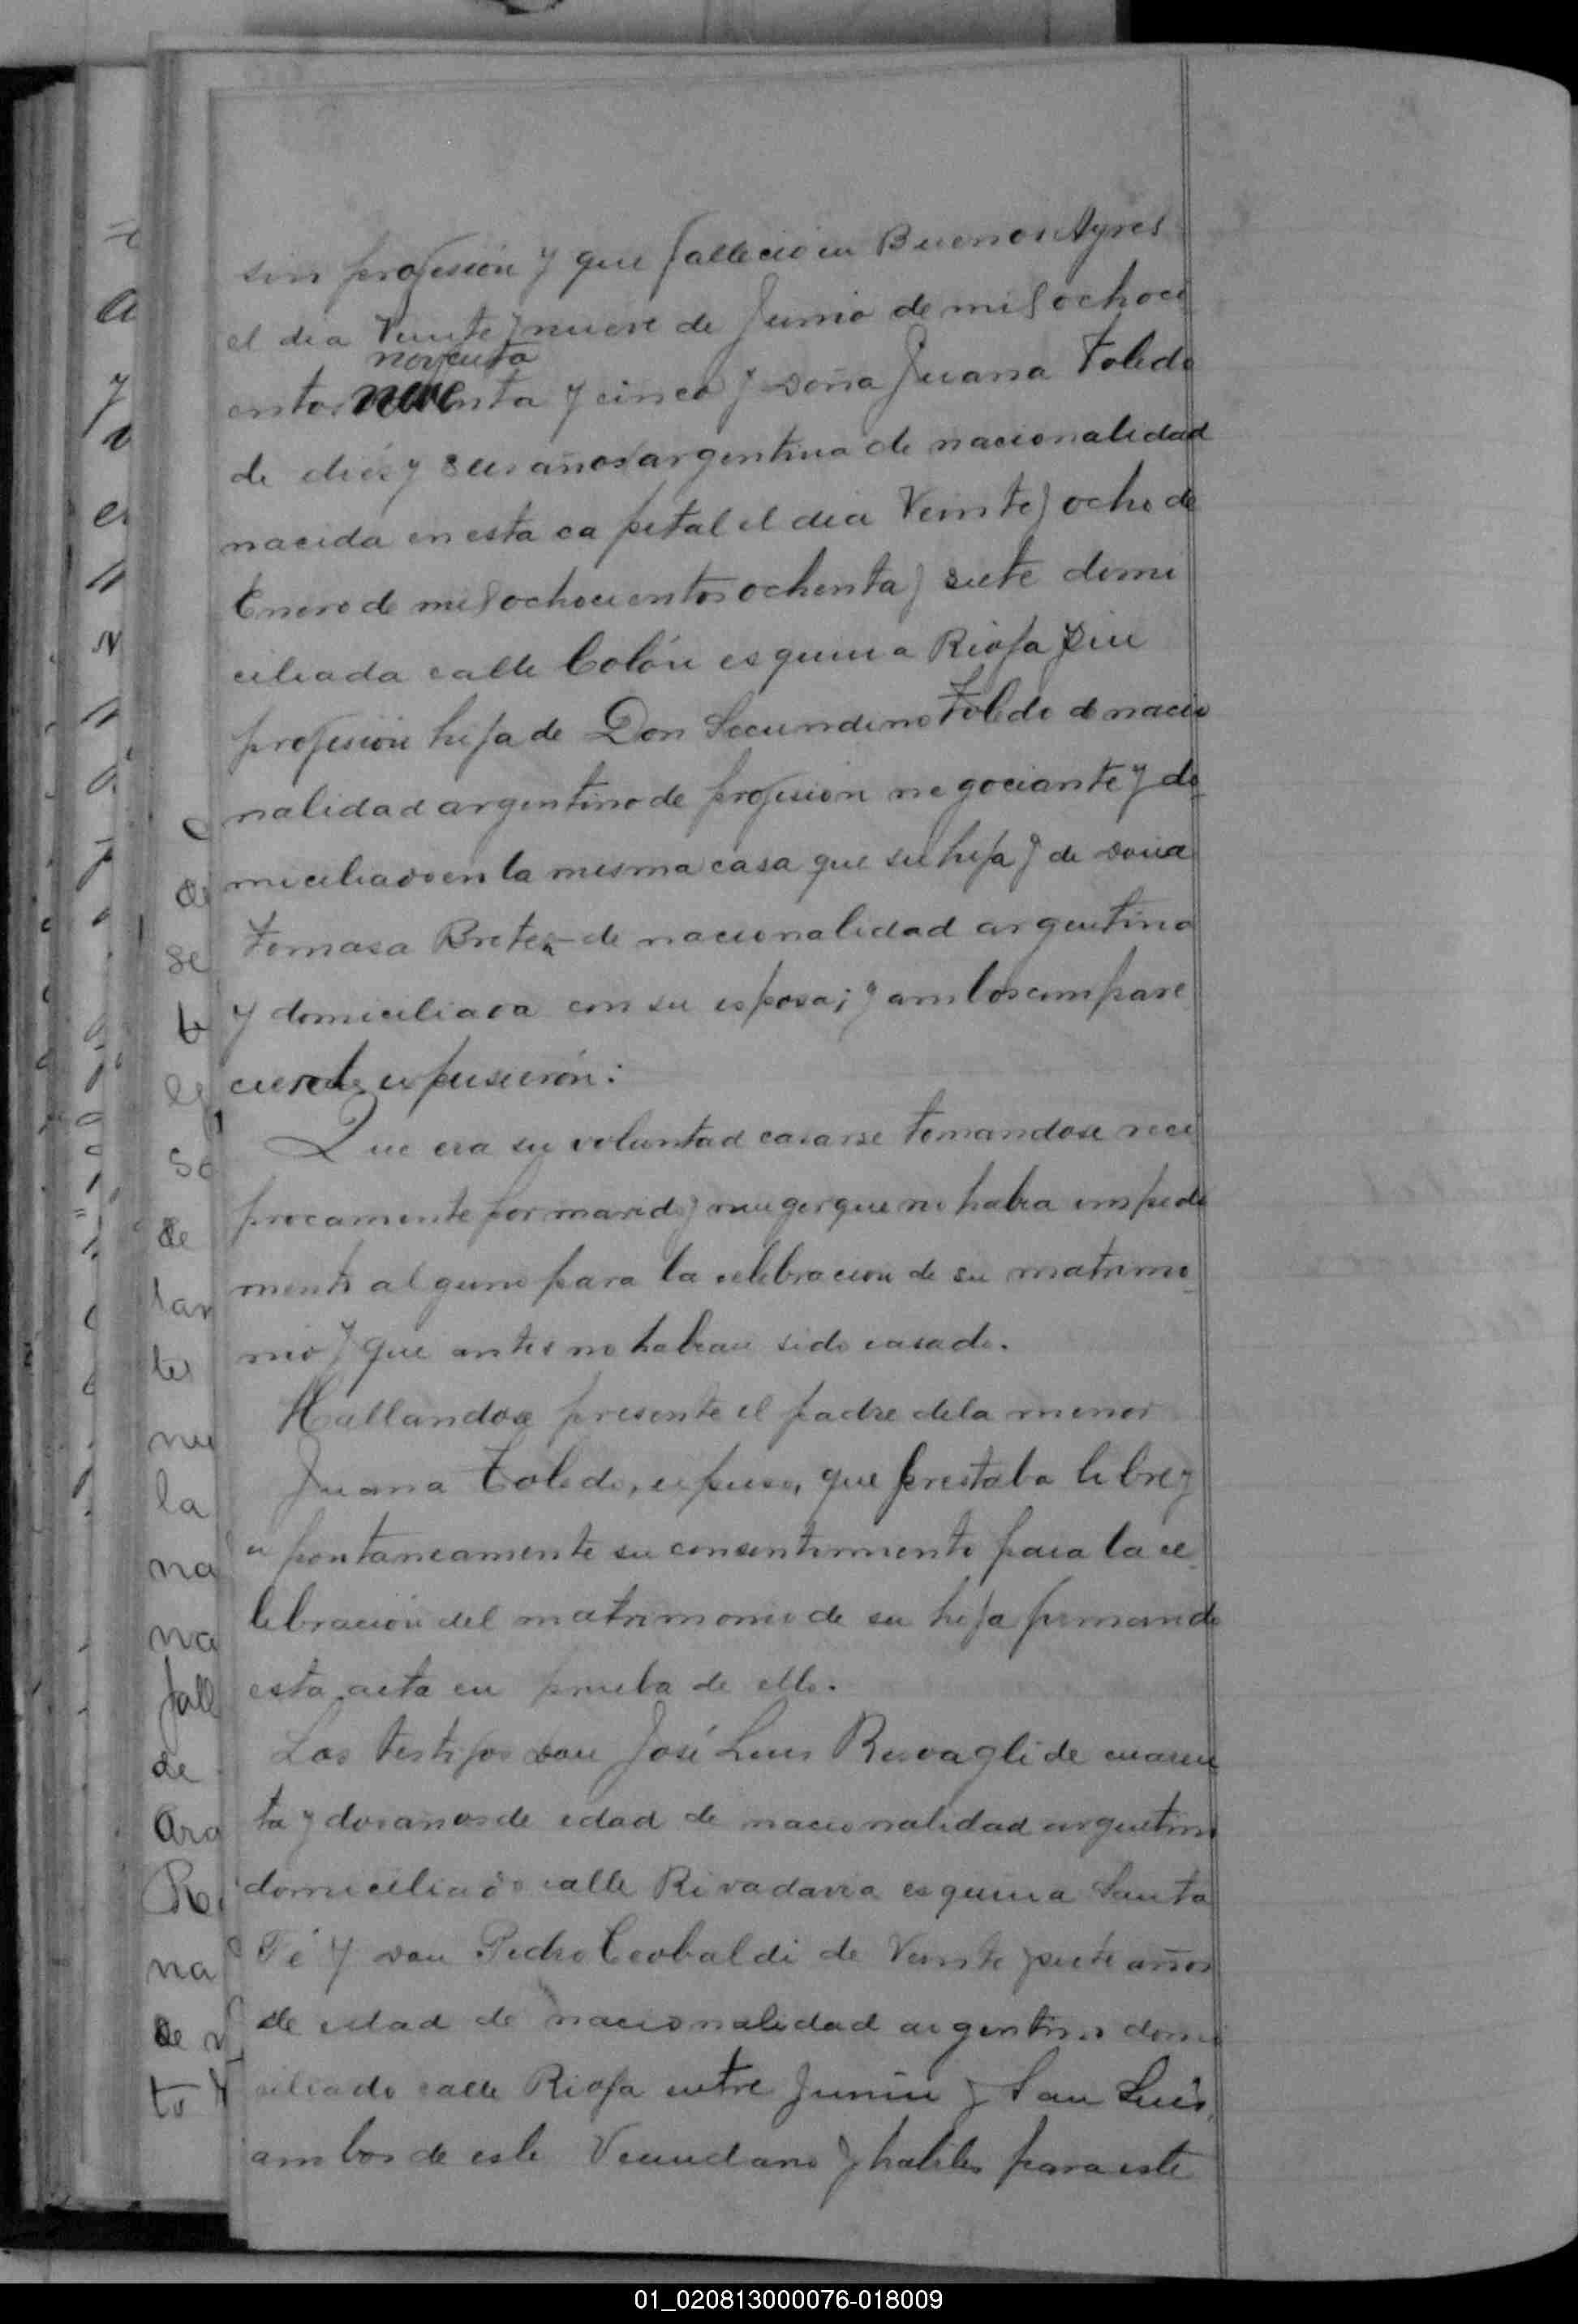 sin profesión y que falleció en Buenos Ayres
el dia Veinte y nueve de Junio de mil ochoci
noventa
entos noventa y cinco y Doña Juana Toledo
de diés y seis años argentina de nacionalidad
nacida en esta capital el dia Veinte y ocho de
Enero de mil ochocientos ochenta y siete domi
ciliada calle Colón esquina Rioja sin
profesión hija de Don Secundino Toledo de nacio
nalidad argentino de profesion negociante y do
miciliado en la misma casa que su hija y de Doña
Tomasa de nacionalidad argentina
y domiciliada con su esposo; y ambos compare
cientes expusierón:
Que era su voluntad casarse tomandose reci
procamente por marido y muger que no habia impedi
mento alguno para la celebracion de su matrimo
nio y que antes no habian sido casado.
Hallandose presente el padre de la menor
Juana Toledo, expuso, que prestaba libre y
espontaneamente su consentimiento para la ce
lebración del matrimonio de su hija firmando
esta acta en prueba de ello.
Los testigos Don José Luis de cuaren
ta y dos años de edad de nacionalidad argentino
domiciliado calle Rivadavia esquina Santa
Fé y Don Pedro Ceobaldi de Veinte y siete años
de edad de nacionalidad argentino domi
ciliado calle Rioja entre Junin y San Luis,
ambos de este Vecindario y habiles para este
01_020813000076-018009